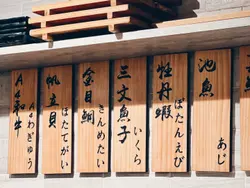 池魚 あじ
牡丹蝦 ぼたんえび
三文魚子 いくら
金目鯛 きんめたい
帆立貝 ほたてがい
A4和牛 A4わぎゅう